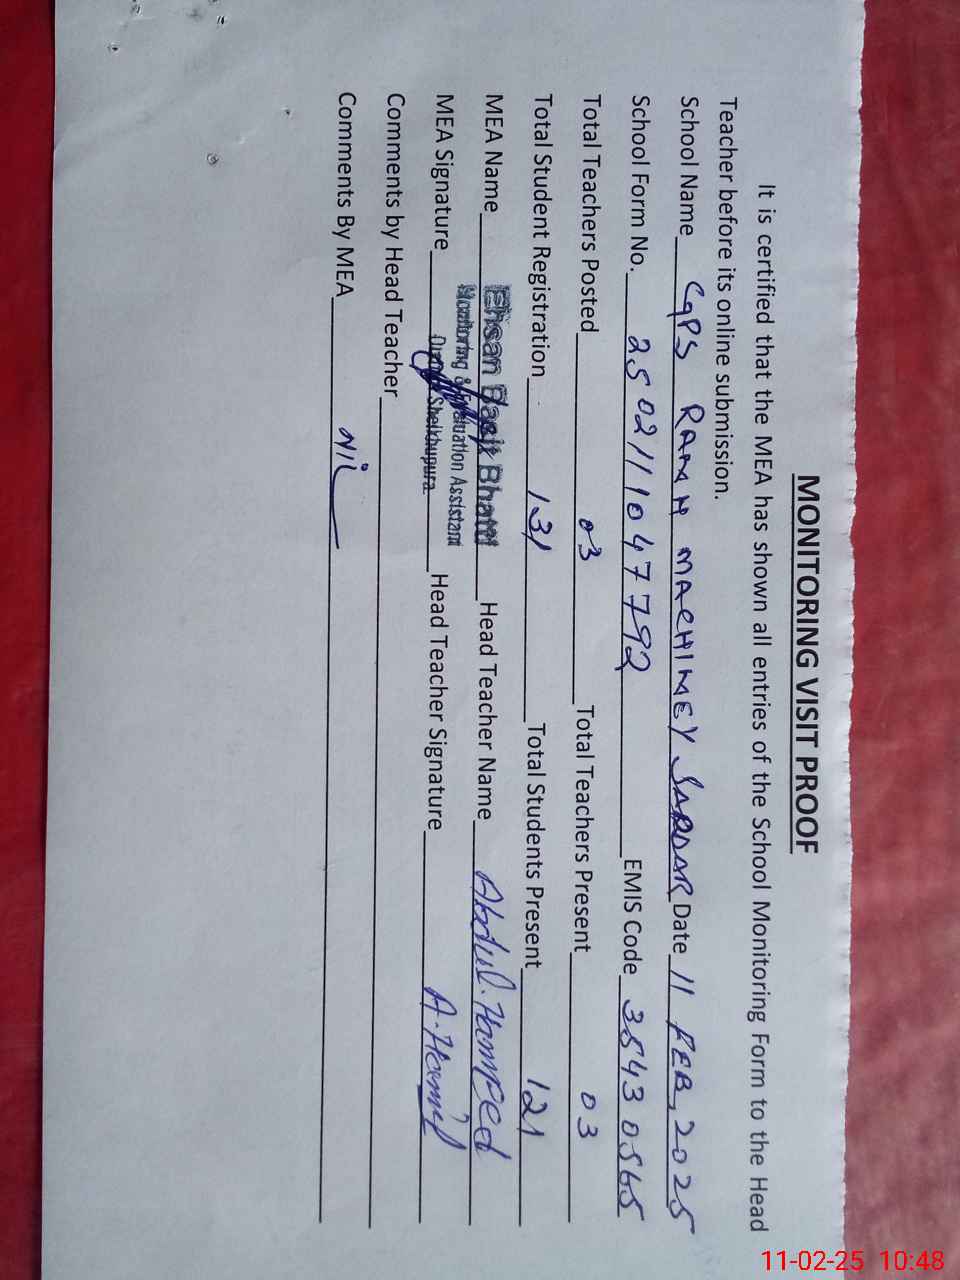 MONITORING VISIT PROOF
It is certified that the MEA has shown all entries of the School Monitoring Form to the Head
Teacher before its online submission.
School Name CGPS RAMN MACHIMEY SARDAR Date 11 FEB, 2025
School Form No. 2502111047792 EMIS Code 35430565
Total Teachers Posted 03 Total Teachers Present 03
Total Student Registration 131 Total Students Present 121
MEA Name Ehsan Basit Bhatti Head Teacher Name Abdul. Hameed
Monitoring & Evaluation Assistant
MEA Signature Sheikhupura. Head Teacher Signature A. Hamid
Comments by Head Teacher
Comments By MEA Nil
11-02-25 10:48